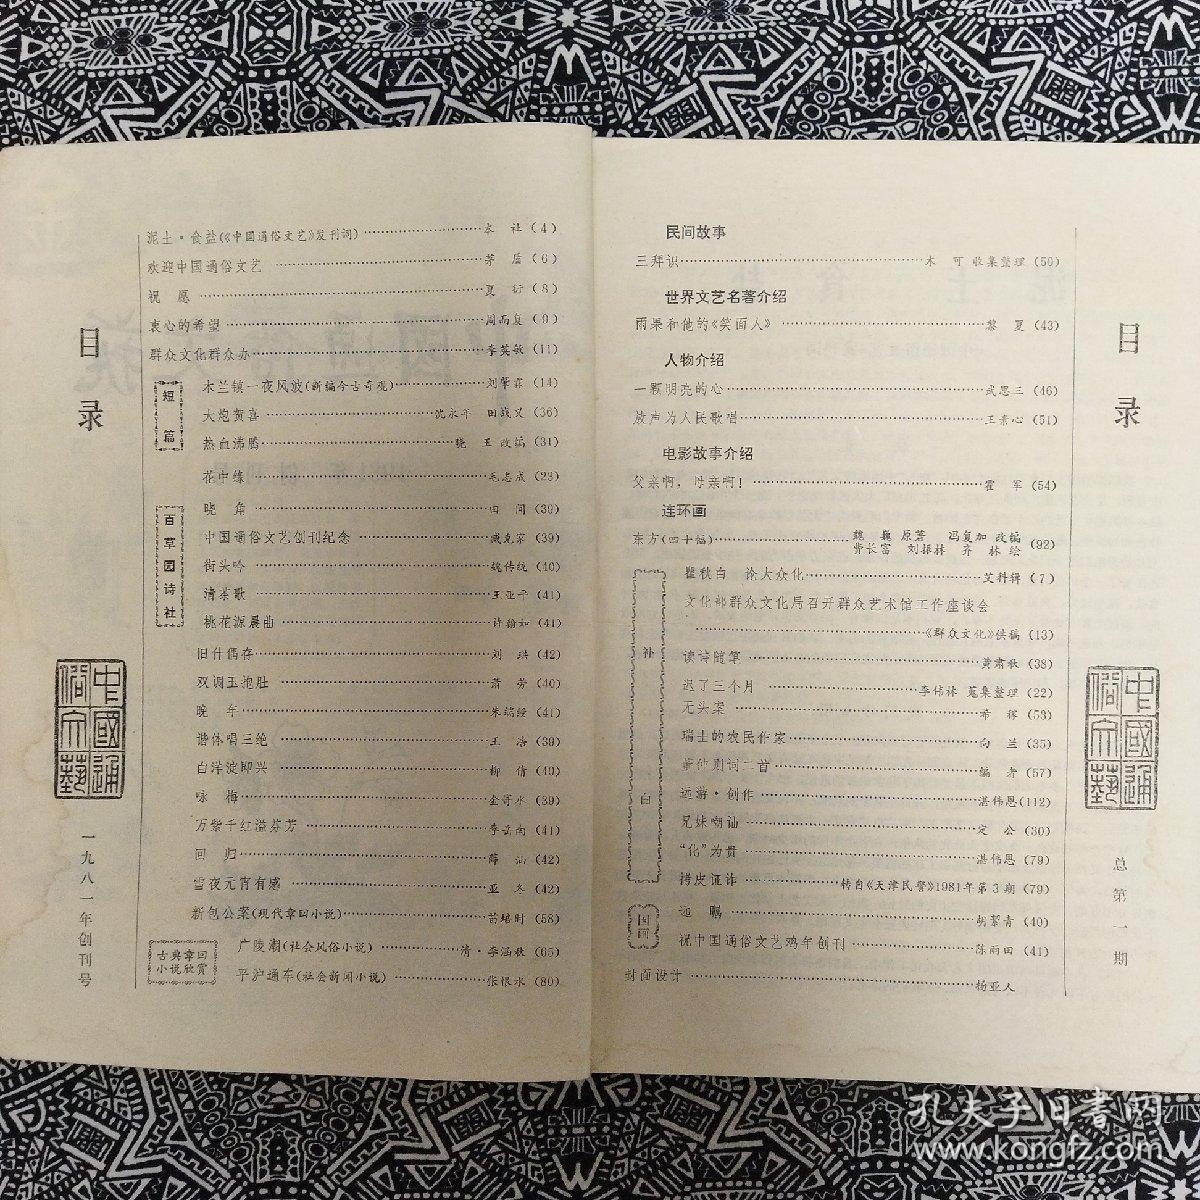 目录
泥土·食盐(《中国通俗文艺》发刊词) 本 社 (4)
欢迎中国通俗文艺 茅 盾 (6)
祝 愿 夏 衍 (8)
衷心的希望 周而复 (9)
群众文化群众办 李英敏 (11)
短篇
木兰镇一夜风波(新编今古奇观) 刘肇霖 (14)
大炮贺喜 沈永年 田战义 (36)
热血沸腾 晓 王 改编 (31)
花中缘 毛志成 (23)
百草园诗社
晓 角 田 间 (39)
中国通俗文艺创刊纪念 臧克家 (39)
街头吟 魏传统 (40)
清茶歌 王亚平 (41)
桃花源晨曲 许翰如 (41)
旧作偶存 刘 琪 (42)
双调玉抱肚 萧 劳 (40)
晚 车 朱端绶 (41)
谐体唱三绝 王 浩 (39)
白洋淀即兴 柳 倩 (40)
咏 梅 金寄水 (39)
万紫千红溢芬芳 李岳南 (41)
回 归 薛 汕 (42)
雪夜元宵有感 亚 冬 (42)
新包公案(现代章回小说) 苗培时 (58)
古典章回小说欣赏
广陵潮(社会风俗小说) 清·李涵秋 (65)
平沪通车(社会新闻小说) 张恨水 (80)
中國通俗文藝
一九八一年创刊号
民间故事
三拜识 木 可 收集整理 (50)
世界文艺名著介绍
雨果和他的《笑面人》 黎 夏 (43)
人物介绍
一颗明亮的心 武思三 (46)
放声为人民歌唱 王素心 (51)
电影故事介绍
父亲啊,母亲啊! 霍 军 (54)
连环画
东方(四十幅) 魏 巍 原著 冯复加 改编
费长富 刘振林 乔 林 绘 (92)
补白
瞿秋白 论大众化 艾科辑 (7)
文化部群众文化局召开群众艺术馆工作座谈会
《群众文化》供稿 (13)
读诗随笔 黄肃秋 (38)
迟了三个月 李伟林 蒐集整理 (22)
无头案 希 稼 (53)
瑞士的农民作家 向 兰 (35)
黄仲则词二首 编 者 (57)
远游·创作 湛伟恩 (112)
兄妹嘲讪 定 公 (30)
“化”为贵 湛伟恩 (79)
撈皮诓诈 转自《天津民警》1981年第3期 (79)
国画
远 瞩 胡絜青 (40)
祝中国通俗文艺鸡年创刊 陈雨田 (41)
封面设计 杨亚人
目录
中國通俗文藝
总第一期
孔夫子旧书网
www.kongfz.com